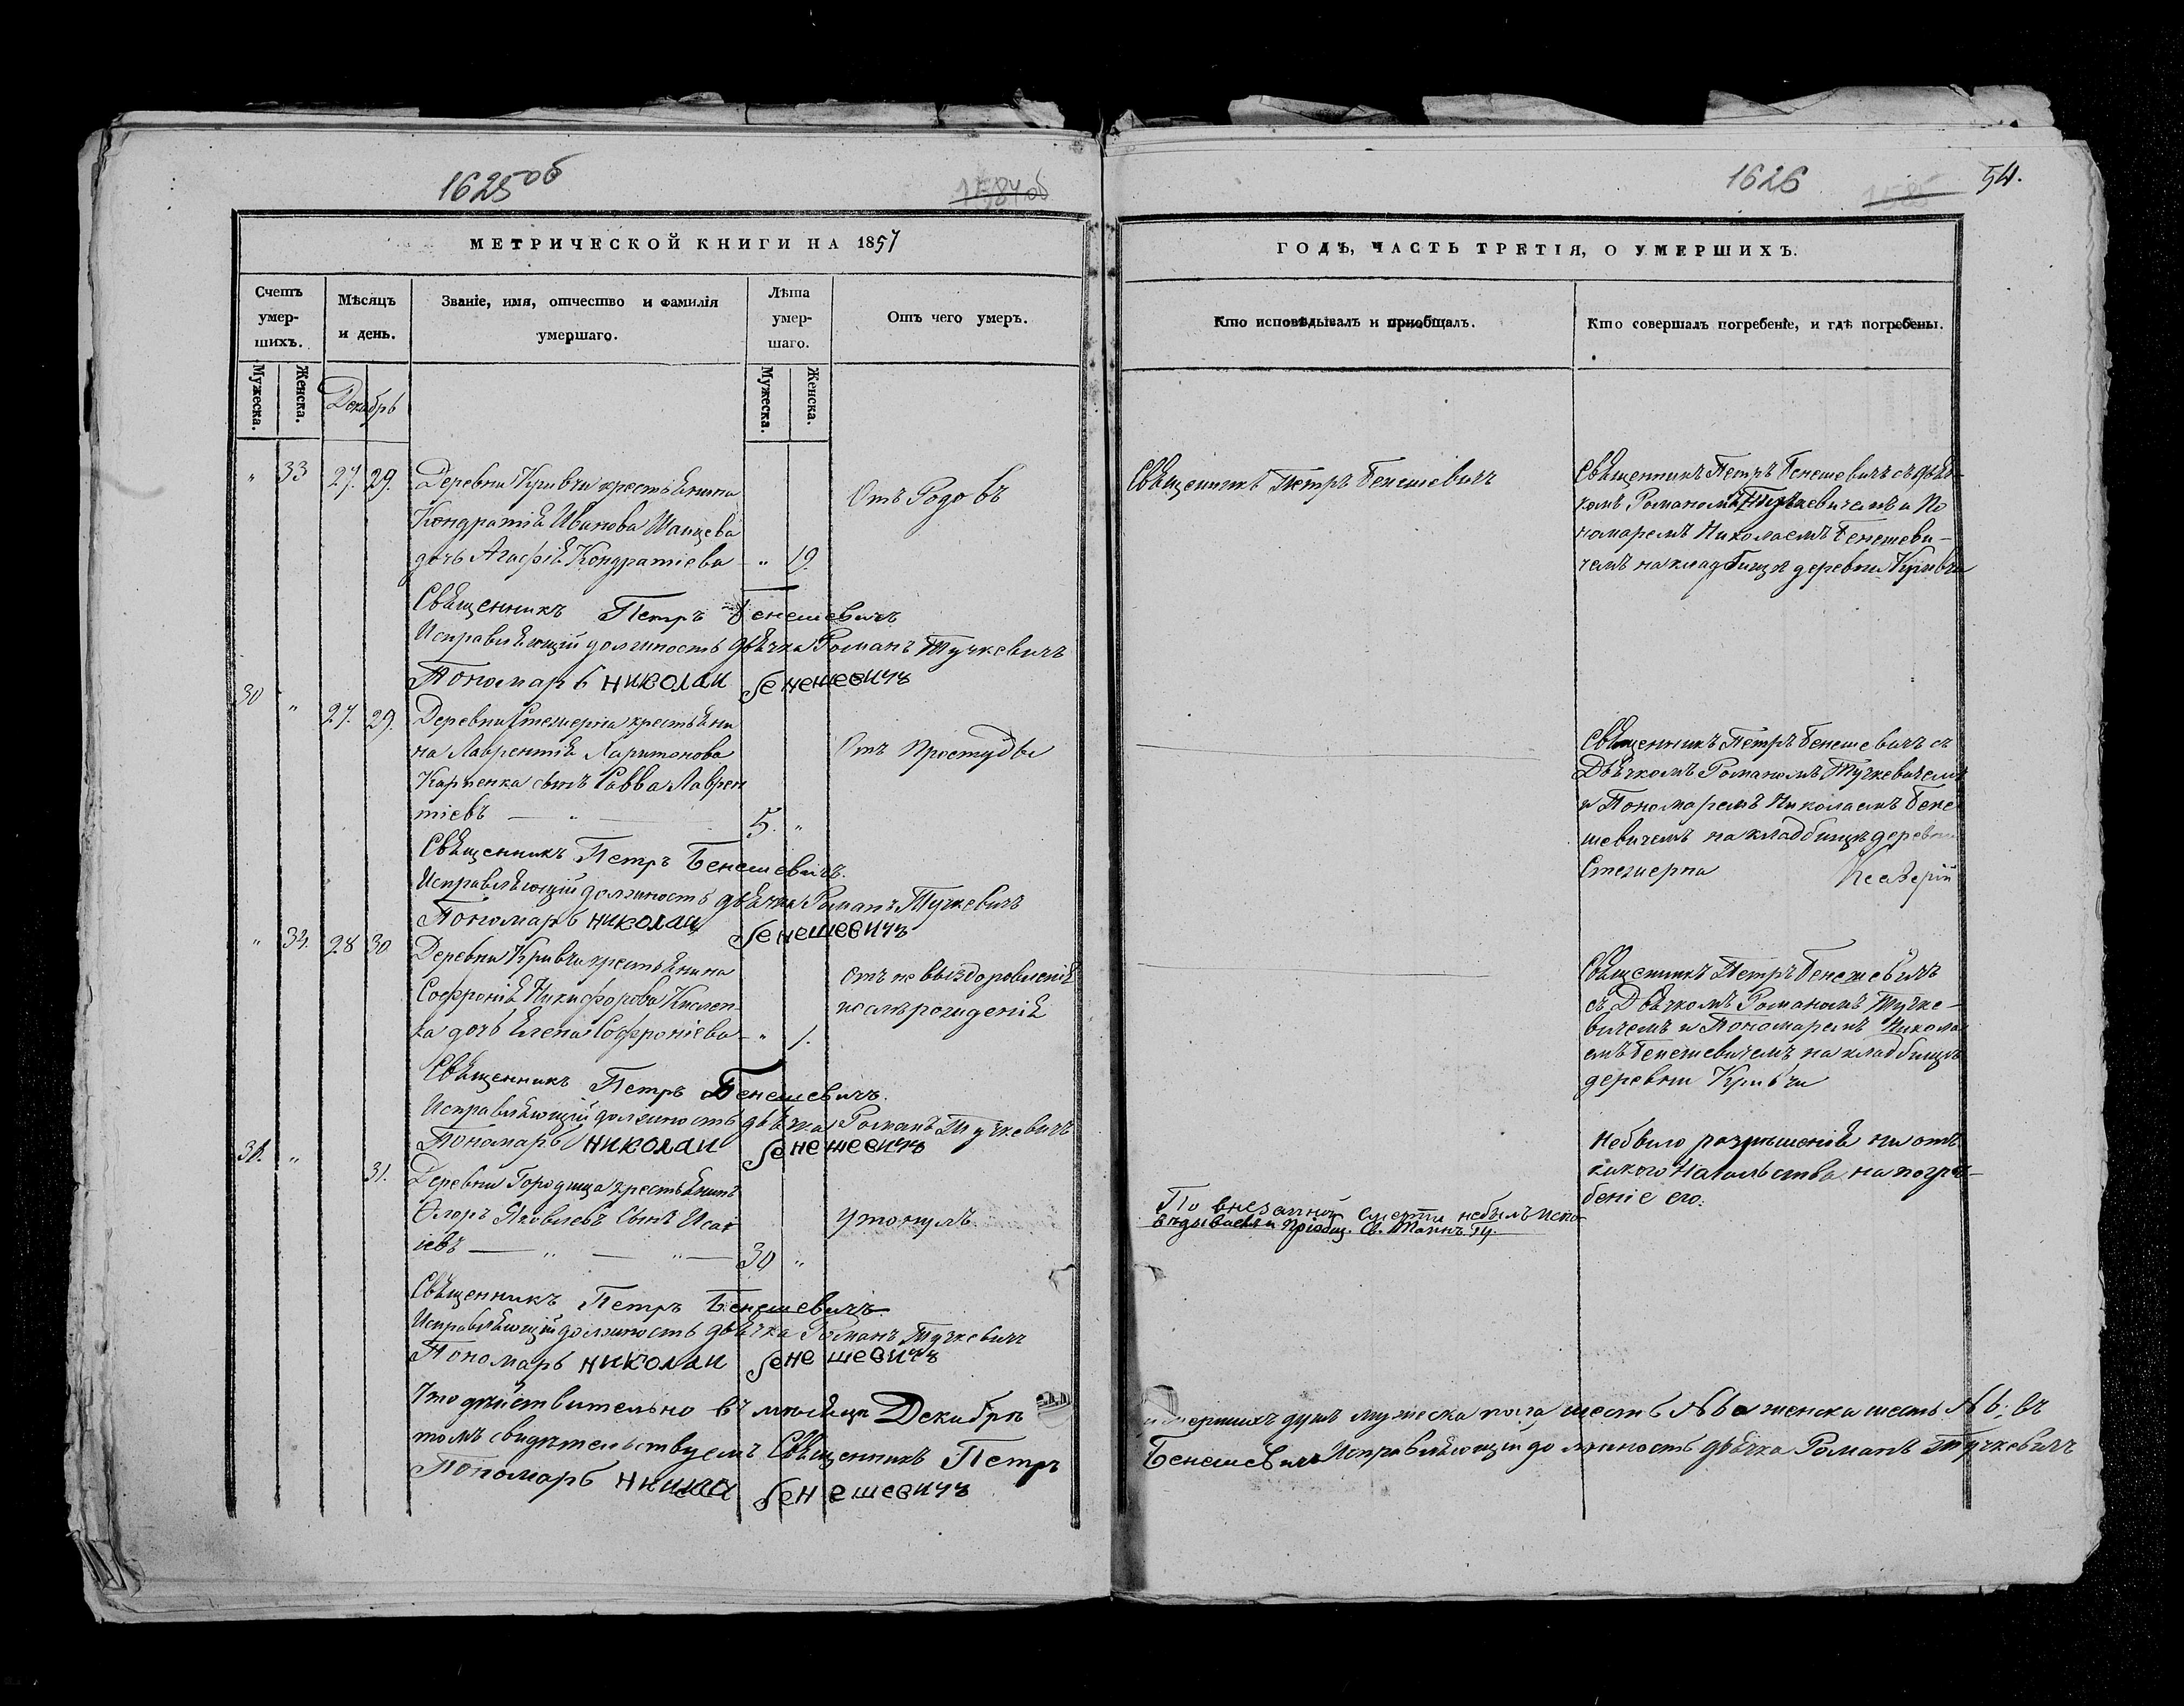 1625 об
1584 об
МЕТРИЧЕСКОЙ КНИГИ НА 1857
Счетъ умер-шихъ.
Мѣсяцъ и день.
Званіе, имя, отчество и фамилія умершаго.
Лѣта умер-шаго.
Отъ чего умеръ.
Мужеска.
Женска.
Декабрь
Мужеска.
Женска.
" 33 27. 29. Деревни Кривчи крестьянина
Отъ Родовъ
Кондратія Иванова Шанцева
дочь Агафія Кондратіева — " 19.
Священникъ Петръ Бенешевичъ
Исправляющій должность дьячка Романъ Тучкевичъ
Пономарь Николаи Бенешевичъ
30 " 27. 29. Деревни Стезперна крестьяни
на Лаврентія Харитонова
Отъ простуды
Карпенка сынъ Савва Лаврен
тіевъ — " — 5. "
Священникъ Петръ Бенешевичъ.
Исправляющій должность дьячка Романъ Тучкевичъ
Пономарь Николаи Бенешевичъ
" 34. 28 30 Деревни Кривчи крестьянина
Отъ не выздоровленія
Софронія Никифорова Кислен-
послѣ рожденія
ка дочь Елена Софроніева — " 1.
Священникъ Петръ Бенешевичъ.
Исправляющій должность дьячка Романъ Тучкевичъ
Пономарь Николаи Бенешевичъ
31. " 31. Деревни Городища крестьянинъ
Флоръ Яковлевъ сынъ Исаі
утонулъ
іевъ — " — " — 30 "
Священникъ Петръ Бенешевичъ
Исправляющій должность дьячка Романъ Тучкевичъ
Пономарь Николаи Бенешевичъ
Что дѣйствительно въ мѣсяцѣ Декабрѣ
томъ свидѣтельствуемъ Священникъ Петръ
Пономарь Бенешевичъ
1626
1585
54.
ГОДЪ, ЧАСТЬ ТРЕТІЯ, О УМЕРШИХЪ.
Кто исповѣдывалъ и приобщалъ.
Кто совершалъ погребеніе, и гдѣ погребены.
Священникъ Петръ Бенешевичъ
Священникъ Петръ Бенешевичъ съ дьяч-
комъ Романомъ Тучкевичемъ и По
номаремъ Николаемъ Бенешеви-
чемъ на кладбищѣ деревни Кривчи
Священникъ Петръ Бенешевичъ съ
Дьячкомъ Романомъ Тучкевичемъ
и Пономаремъ Николаемъ Бене
шевичемъ на кладбищѣ деревни
Стезперна
Священникъ Петръ Бенешевичъ
съ Дьячкомъ Романомъ Тучке-
вичемъ и Пономаремъ Никола
емъ Бенешевичемъ на кладбищѣ
деревни Кривчи
Небыло разрѣшенія ни отъ
какого Начальства на погре-
беніе его.
По внезапной смерти небылъ испо-
вѣдываемъ и пріобщ. Св. Таинъ.
умершихъ душъ мужеска пола шесть № 6 а женска шесть № 6; въ
Бенешевичъ Исправляющій должность дьячка Романъ Тучкевичъ